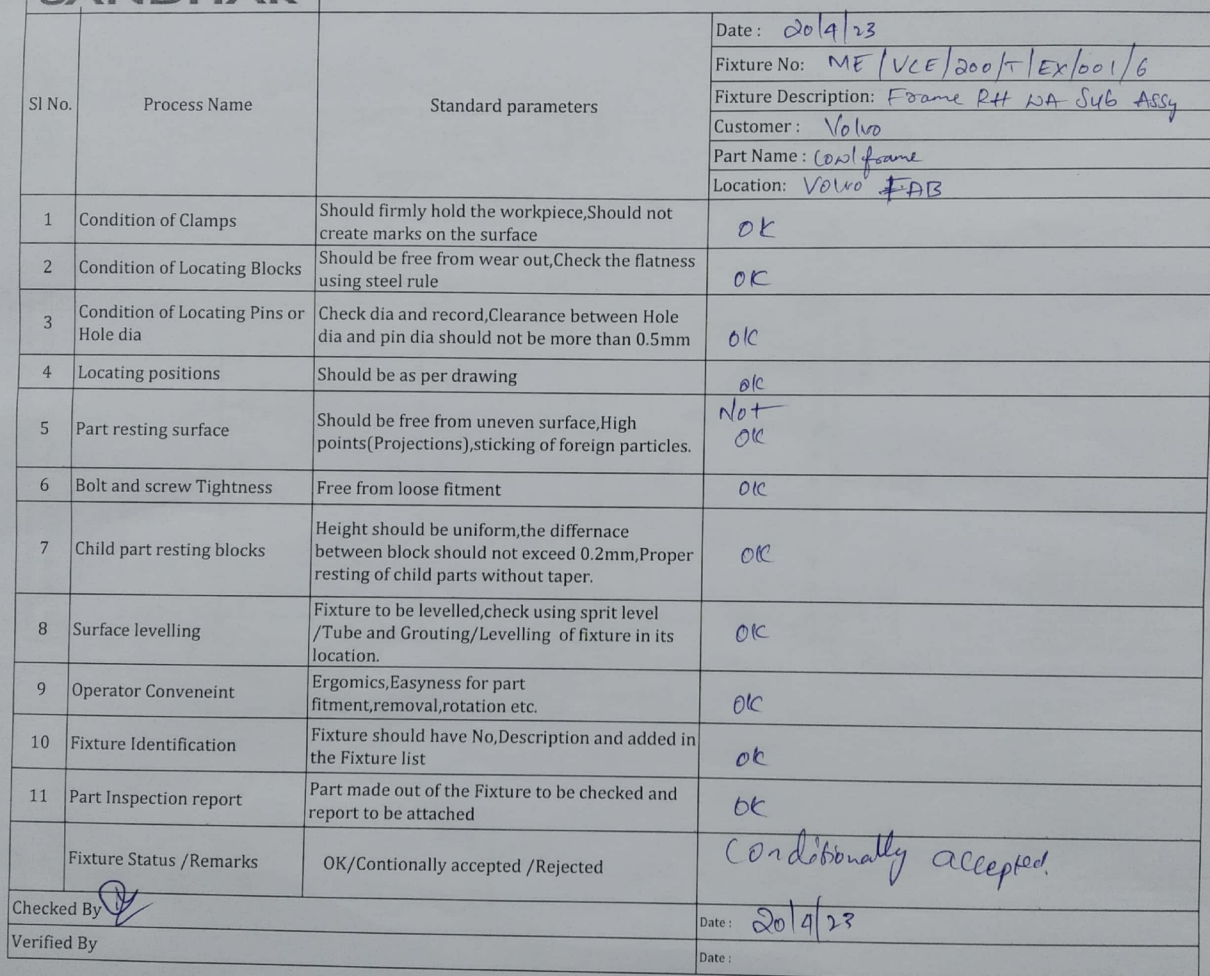 SANDHAR
Sl No.
Process Name
Standard parameters
Date : 20/4/23
Fixture No: ME/VCE/200/T/EX/001/6
Fixture Description: Frame RH WA Sub Assy
Customer : Volvo
Part Name : Cowl frame
Location: Volvo FAB
1
Condition of Clamps
Should firmly hold the workpiece,Should not
create marks on the surface
OK
2
Condition of Locating Blocks
Should be free from wear out,Check the flatness
using steel rule
OK
3
Condition of Locating Pins or
Hole dia
Check dia and record,Clearance between Hole
dia and pin dia should not be more than 0.5mm
OK
4
Locating positions
Should be as per drawing
OK
5
Part resting surface
Should be free from uneven surface,High
points(Projections),sticking of foreign particles.
Not
OK
6
Bolt and screw Tightness
Free from loose fitment
OK
7
Child part resting blocks
Height should be uniform,the differnace
between block should not exceed 0.2mm,Proper
resting of child parts without taper.
OK
8
Surface levelling
Fixture to be levelled,check using sprit level
/Tube and Grouting/Levelling of fixture in its
location.
OK
9
Operator Conveneint
Ergomics,Easyness for part
fitment,removal,rotation etc.
OK
10
Fixture Identification
Fixture should have No,Description and added in
the Fixture list
OK
11
Part Inspection report
Part made out of the Fixture to be checked and
report to be attached
OK
Fixture Status /Remarks
OK/Contionally accepted /Rejected
Conditionally accepted.
Checked By
Date : 20/4/23
Verified By
Date :